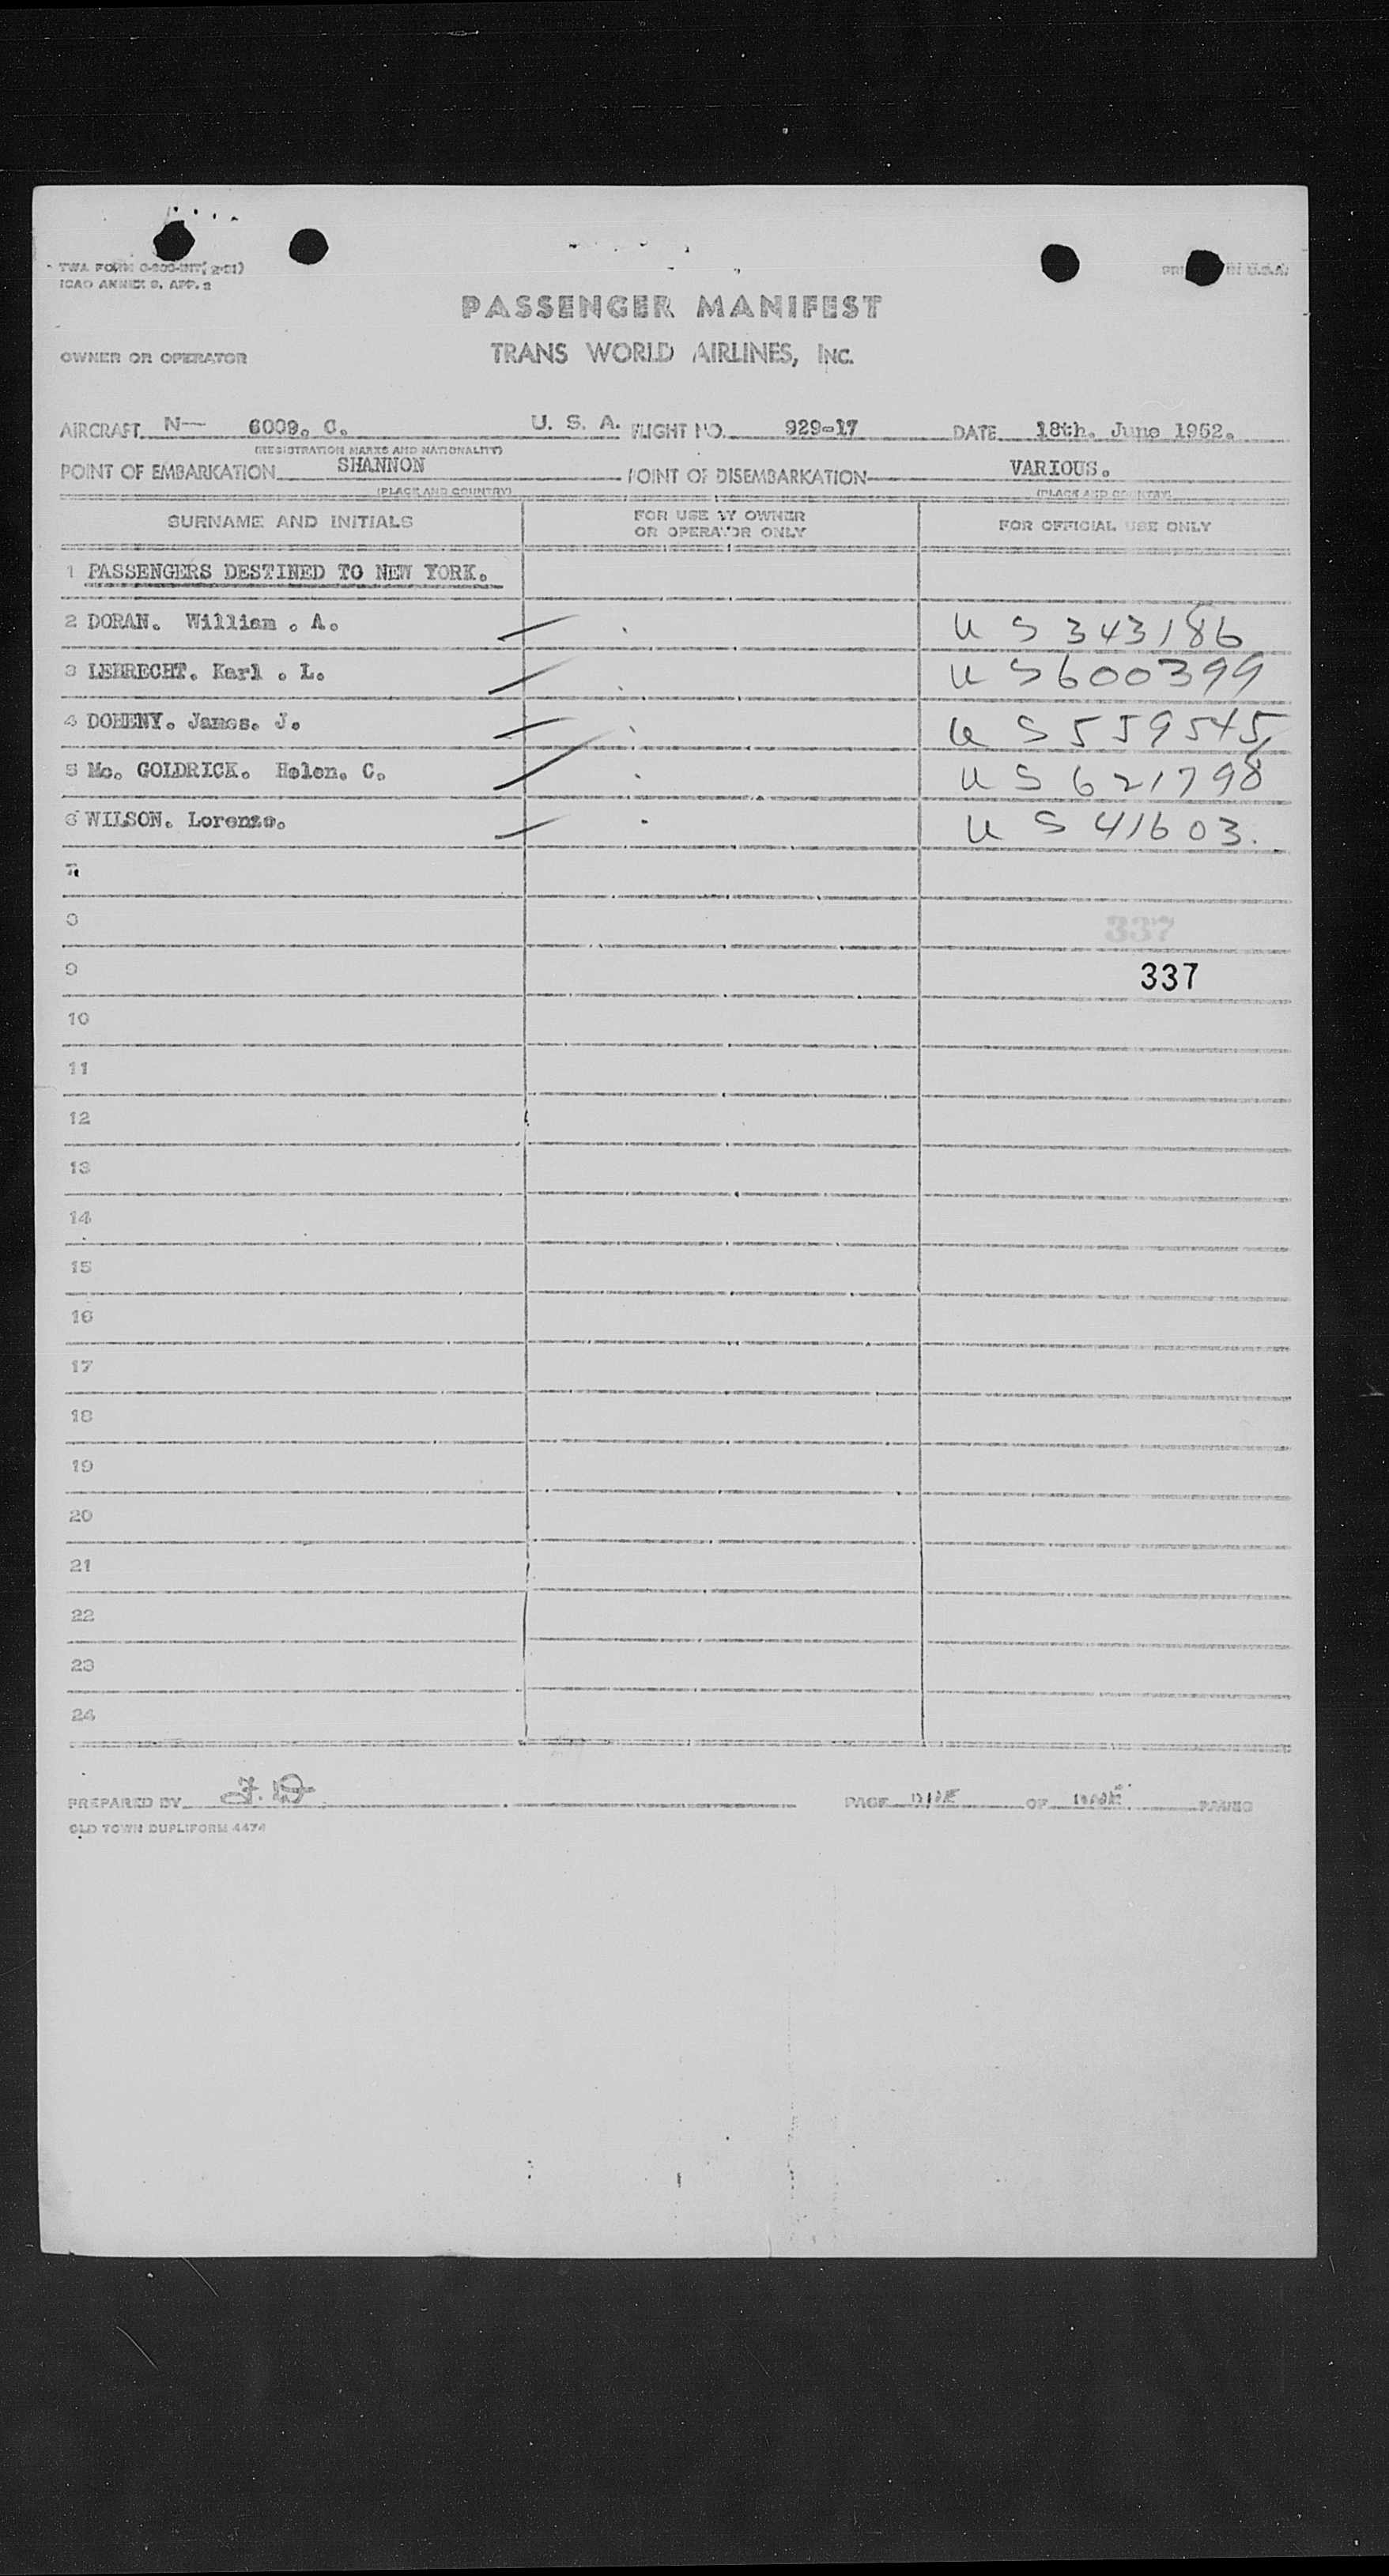 TWA FORM
ICAO ANNEX 9, APP. 2
PRINTED IN U.S.A.
PASSENGER MANIFEST
OWNER OR OPERATOR TRANS WORLD AIRLINES, INC.
AIRCRAFT N— 6009. C. U. S. A. FLIGHT NO. 929-17 DATE 18th. June 1952.
(REGISTRATION MARKS AND NATIONALITY)
POINT OF EMBARKATION SHANNON POINT OF DISEMBARKATION VARIOUS.
(PLACE AND COUNTRY) (PLACE AND COUNTRY)
SURNAME AND INITIALS FOR USE BY OWNER OR OPERATOR ONLY FOR OFFICIAL USE ONLY
1 PASSENGERS DESTINED TO NEW YORK.
2 DORAN. William . A. U S 343186
3 LEBRECHT. Karl . L. U S 600399
4 DOHENY. James. J. U S 559545
5 Mc. GOLDRICK. Helen. C. U S 621798
6 WILSON. Lorenzo. U S 41603.
7
8 337
9 337
10
11
12
13
14
15
16
17
18
19
20
21
22
23
24
PREPARED BY PAGE OF PAGES
OLD TOWN DUPLIFORM 4474